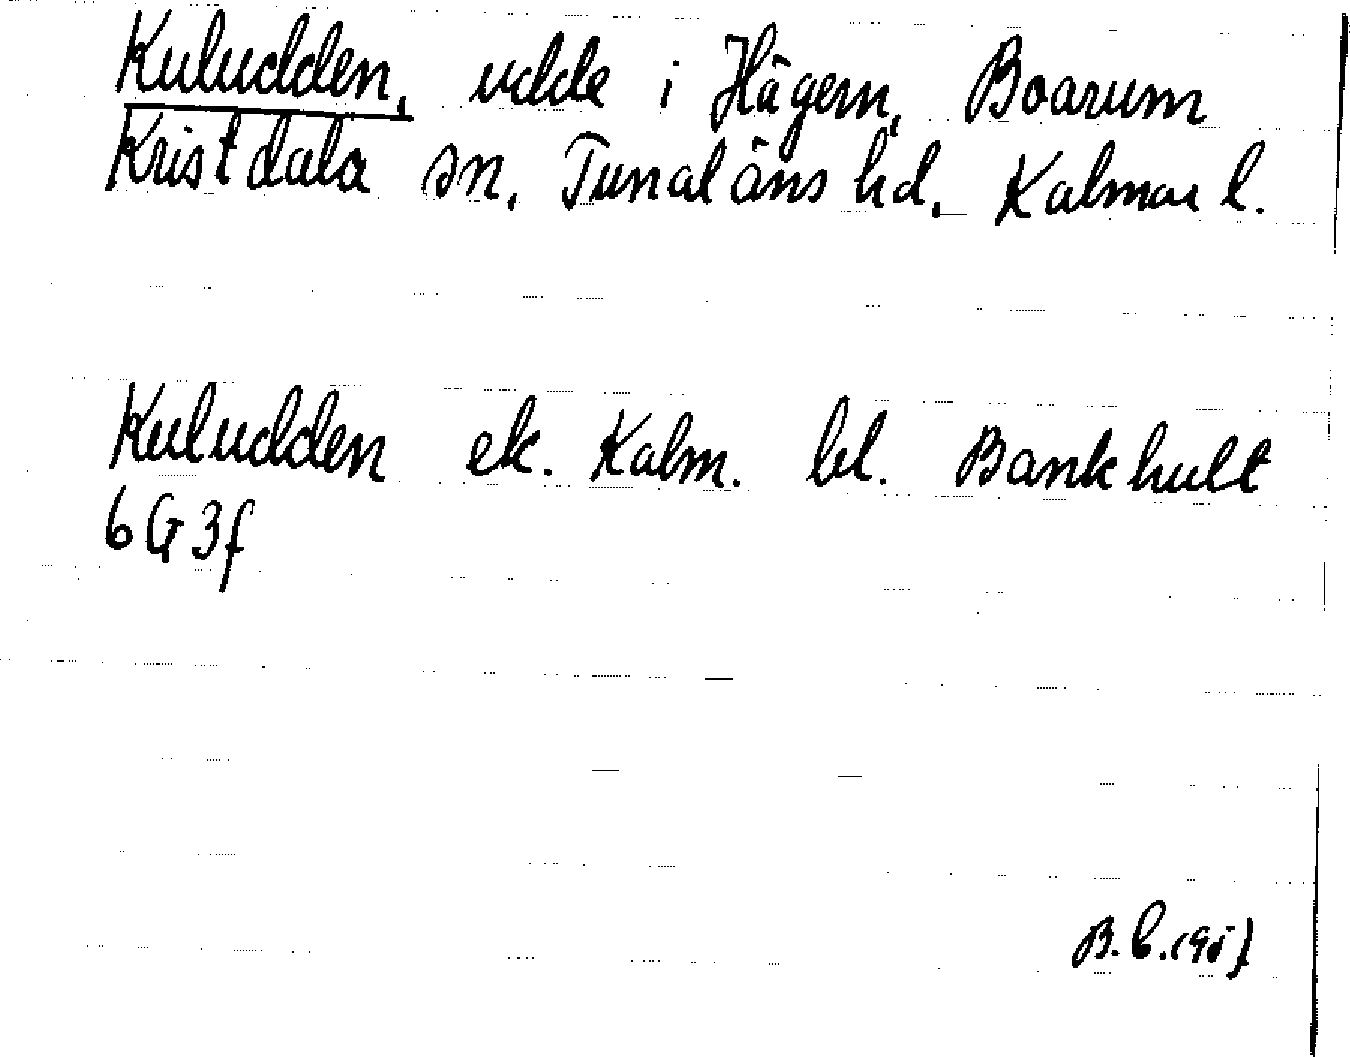 Kuludden, udde i Hägern, Boarum
Kristdala sn, Tunaläns hd, Kalmar l.
Kuludden ek. Kalm. bl. Bankhult
6G3f
B.C.(95)